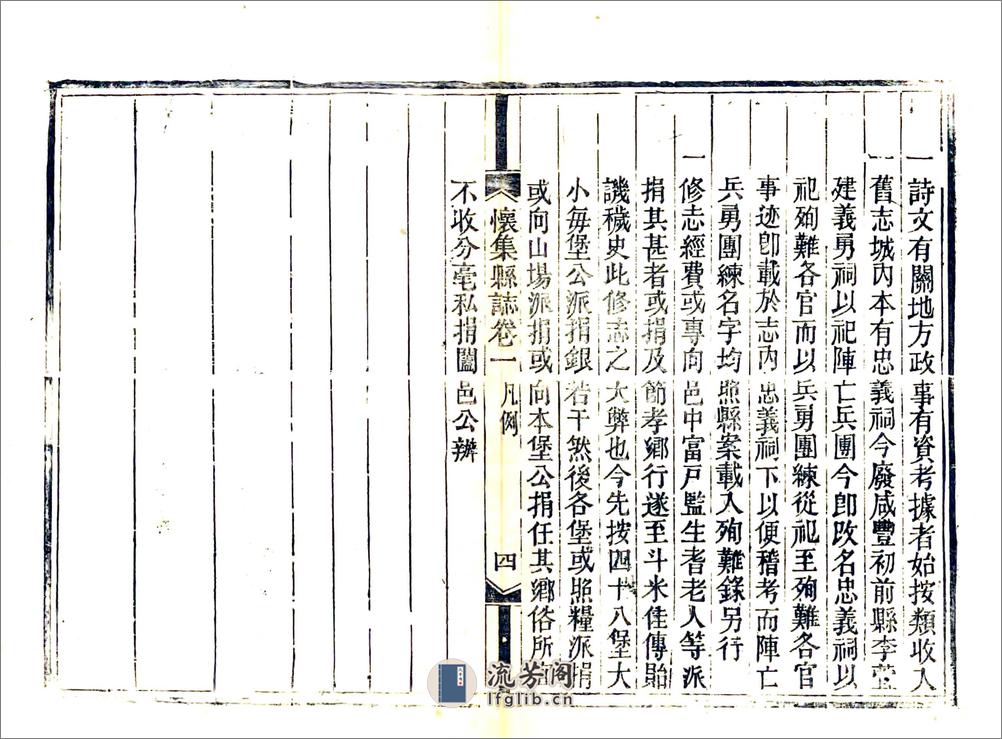 一詩文有關地方政事有資考據者始按類收入
一舊志城內本有忠義祠今廢咸豐初前縣李
建義勇祠以祀陣亡兵團今卽改名忠義祠以
祀殉難各官而以兵勇團練從祀至殉難各官
事迹卽載於志內忠義祠下以便稽考而陣亡
兵勇團練名字均照縣案載入殉難錄另行
一修志經費或專向邑中富戸監生耆老人等派
捐其甚者或捐及節孝鄉行遂至斗米佳傳貽
譏穢史此修志之大弊也今先按四十八堡大
小每堡公派捐銀若干然後各堡或照糧派捐
或向山場派捐或向本堡公捐任其鄉俗所
不收分毫私捐闔邑公辦
懷集縣誌卷一 凡例 四
流芳阁
lfglib.cn